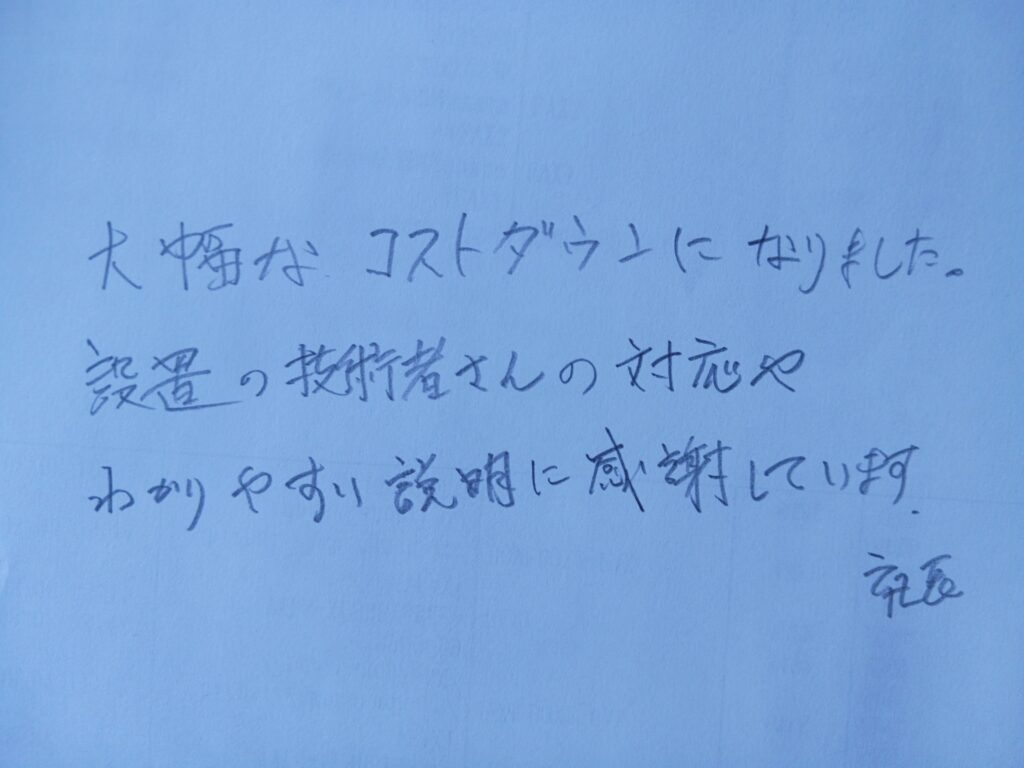 大幅な コストダウンに なりました。
設置の技術者さんの対応や
わかりやすい説明に感謝しています.
社長